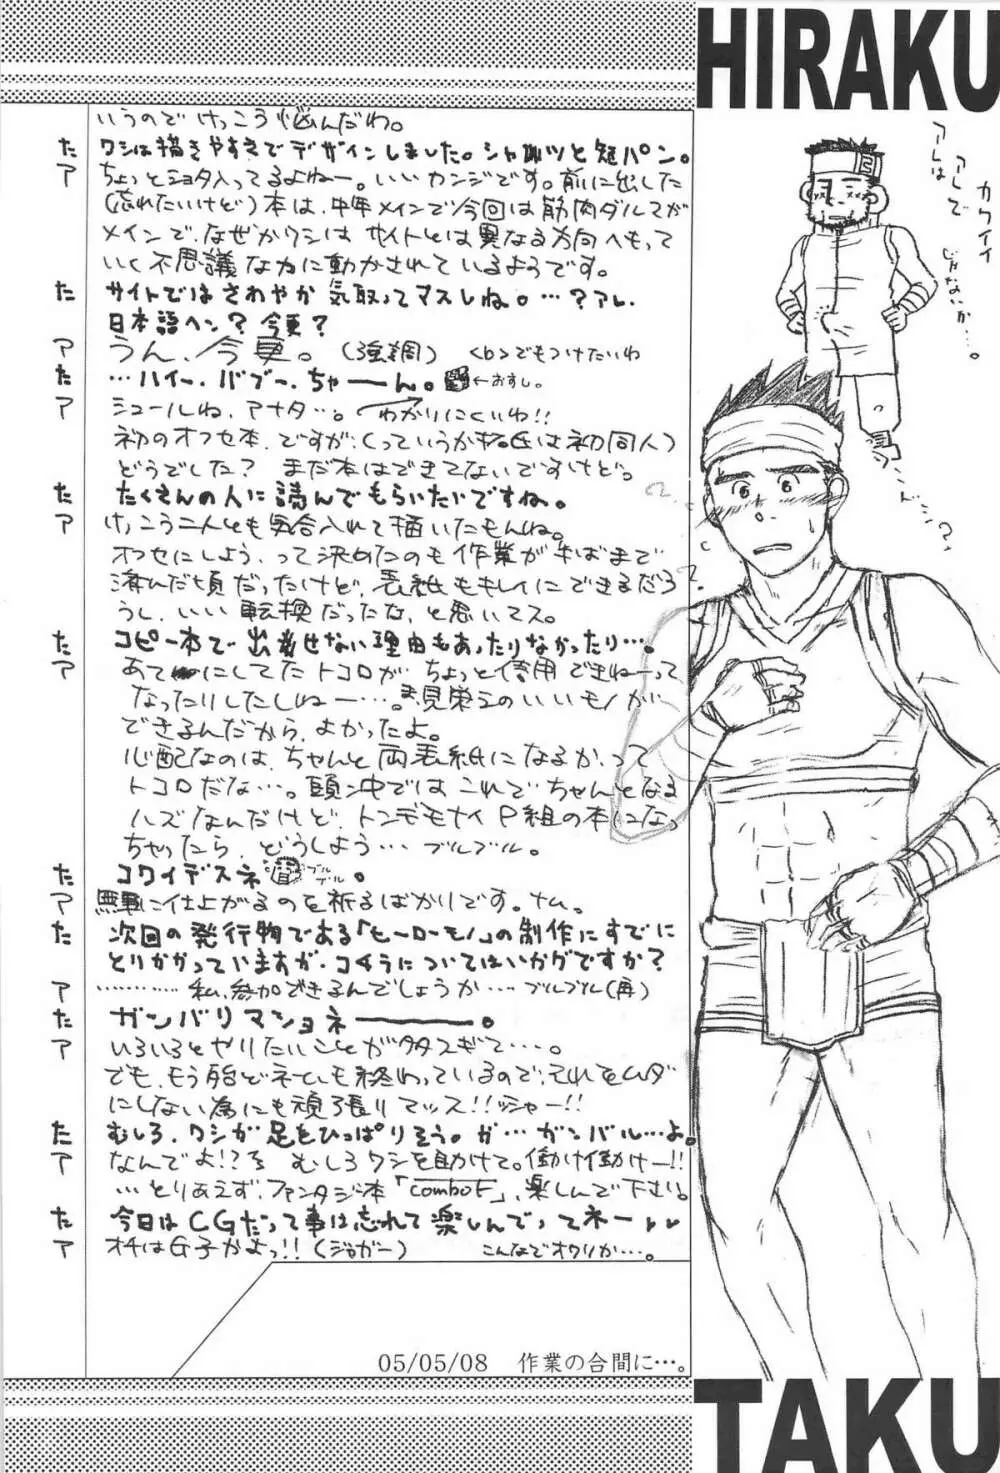 HIRAKU
いうのでけっこう悩んだわ。
た ワシは描きやすさでデザインしました。シャツと短パン。
ア ちょっとショタ入ってるよねー。いいカンジです。前に出した
(忘れたいけど)本は、中年メインで今回は筋肉ダルマが
メインで、なぜかワシはサイトとは異なる方向へもって
いく不思議な力に動かされているようです。
た サイトではさわやか気取ってマスしね。…?アレ、
日本語ヘン?今更?
ア うん、今更。(強調) <b>でもつけたいわ
た …ハイー、バブー、ちゃーん。←おすし。
ア シュールね、アナタ…。わかりにくいわ!!
初のオフセ本、ですが、(っていうか氏は初同人)
どうでした? まだ本はできてないですけど。
た たくさんの人に読んでもらいたいですね。
ア けっこう二人とも気合入れて描いたもんね。
オフセにしよう、って決めたのも作業が半ばまで
済んだ頃だったけど、表紙もキレイにできるだろ
うし、いい転換だったな、と思いマス。
た コピー本で出せない理由もあったりなかったり…。
ア あてにしてたトコロが、ちょっと信用できねーって
なったりしたしねー…。見栄えのいいモノが
できるんだから、よかったよ。
心配なのは、ちゃんと両表紙になるか、って
トコロだな…。頭ン中ではこれでちゃんとなる
ハズなんだけど、トンデモナイP組の本になっ
ちゃったら、どうしよう…ブルブル。
た コワイデスネ ブルブル。
ア 無事に仕上がるのを祈るばかりです。ナム。
た 次回の発行物である「ヒーローモノ」の制作にすでに
とりかかっていますが、コチラについてはいかがですか?
ア …………私、参加できるんでしょうか…ブルブル(再)
た ガンバリマショネー。
ア いろいろとやりたいことが多スギて…。
でも、もう殆どネームも終わっているので、それをムダ
にしない為にも頑張りマッス!!ッシャー!!
た むしろ、ワシが足をひっぱりそう。が…ガンバル…よ。
ア なんでよ!?むしろワシを助けて。働け働けー!!
…とりあえず、ファンタジー本「combo F」、楽しんで下さい。
た 今日はCGだって事は忘れて楽しんでってネー
ア オチはG子かよっ!!(ジョガー) こんなでオワリか…。
05/05/08 作業の合間に…。
アレは
アレで
カワイイ
じゃないか…。
TAKU